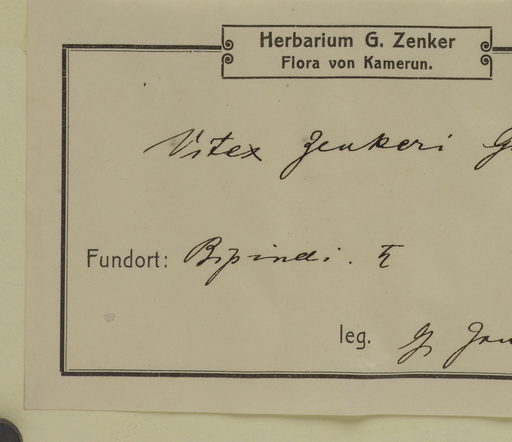 Herbarium G. Zenker
Flora von Kamerun.
Vitex Zenkeri
Fundort: Bipindi. ♄
leg. G Zen